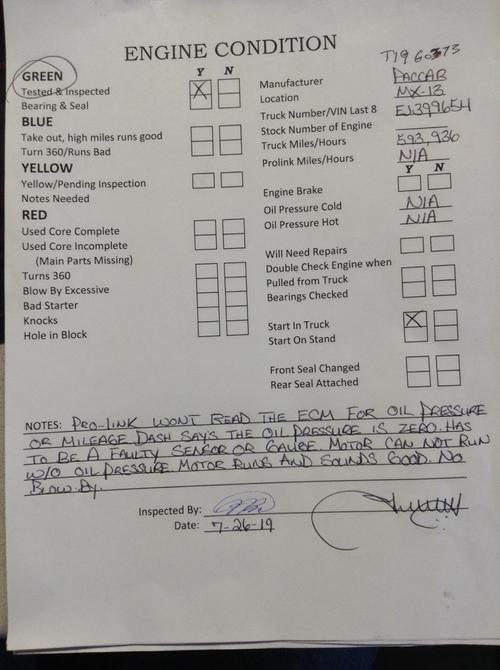 ENGINE CONDITION
T196 0373
GREEN
Y N
Tested & Inspected
Bearing & Seal
BLUE
Take out, high miles runs good
Turn 360/Runs Bad
YELLOW
Yellow/Pending Inspection
Notes Needed
RED
Used Core Complete
Used Core Incomplete
(Main Parts Missing)
Turns 360
Blow By Excessive
Bad Starter
Knocks
Hole in Block
Manufacturer PACCAR
Location MX-13
Truck Number/VIN Last 8 EJ399654
Stock Number of Engine
Truck Miles/Hours 593,936
Prolink Miles/Hours N/A
Y N
Engine Brake
Oil Pressure Cold N/A
Oil Pressure Hot N/A
Will Need Repairs
Double Check Engine when
Pulled from Truck
Bearings Checked
Start In Truck
Start On Stand
Front Seal Changed
Rear Seal Attached
NOTES: PRO-LINK WONT READ THE ECM FOR OIL PRESSURE
OR MILEAGE DASH SAYS THE OIL PRESSURE IS ZERO. HAS
TO BE A FAULTY SENSOR OR GAUGE. MOTOR CAN NOT RUN
W/O OIL PRESSURE. MOTOR RUNS AND SOUNDS GOOD. NO
BLOW BY.
Inspected By:
Date: 7-26-19